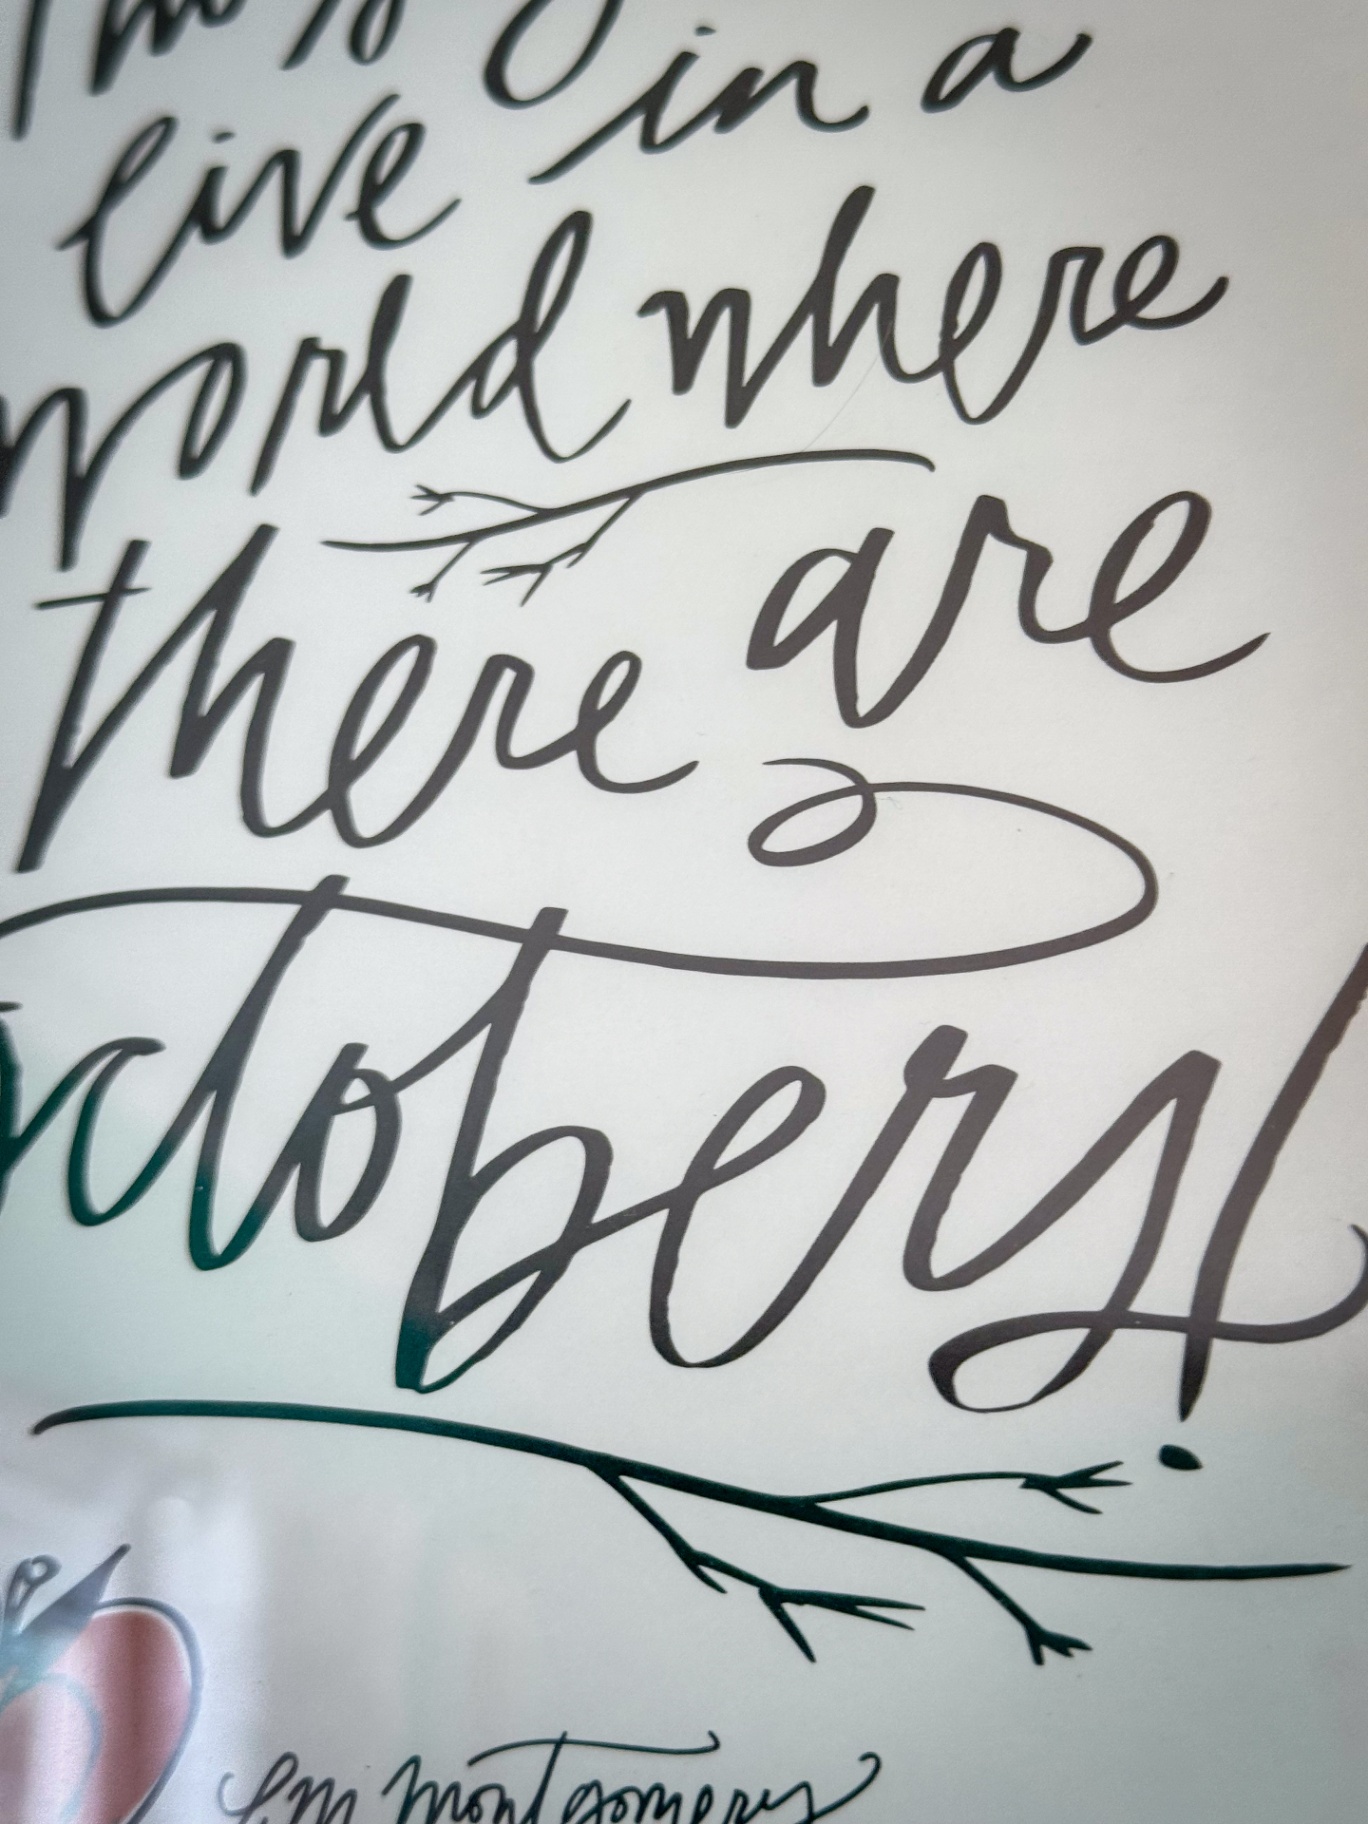 live in a
world where
there are
Octobers!
LM Montgomery